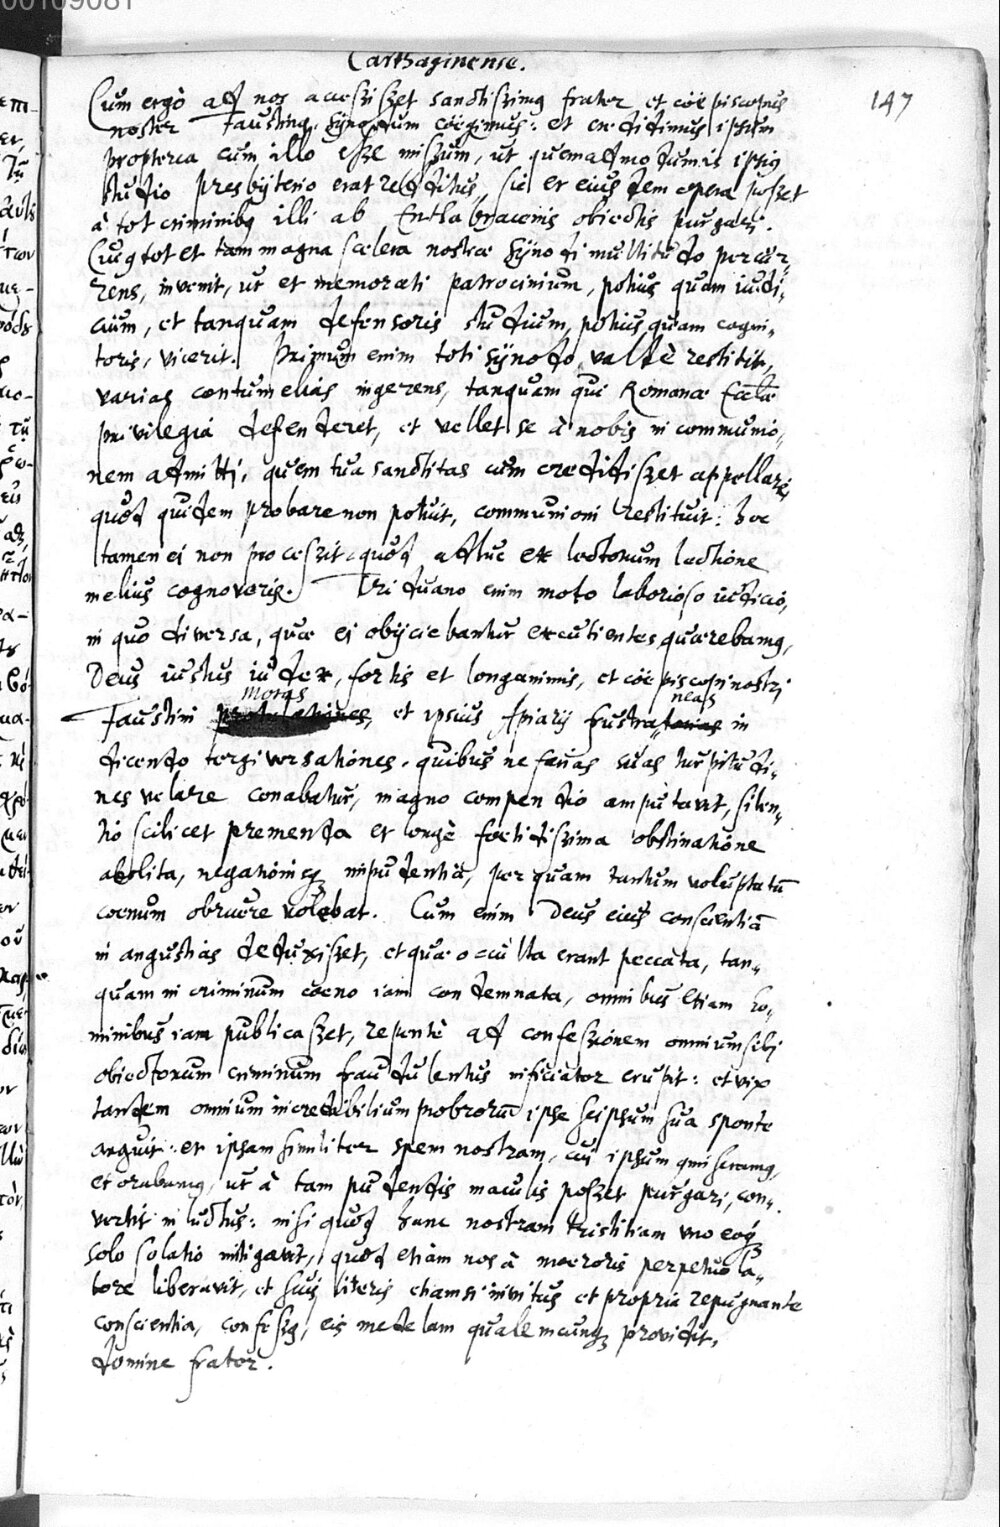 00109081
Carthaginense.
147
Cum ergò ad nos accessisset sanctissimus frater et cöepiscopus
noster Faustinus. Synodum cöegimus: et credidimus ipsum
propterea cum illo esse missum, ut quemadmodum is ipsius
studio presbyterio erat redditus, sic et eiusdem opera posset
à tot criminibus illi ab Entlabracenis obiectis purgari.
Cuius tot et tam magna scelera nostræ Synodi multitudo percur„
rens, invenit, ut et memorati patrocinium, potius quam iudi„
cium, et tanquam defensoris studium, potius quam cogni„
toris, vicerit. Primum enim toti synodo valdè restitit,
varias contumelias ingerens, tanquam qui Romanæ Eccl̄æ
privilegia defenderet, et vellet se à nobis in communio„
nem admitti, quem tua sanctitas cum credidisset appellare,
quod quidem probare non potuit, communioni restituit: hoc
tamen ei non processit, quod adhuc ex lectorum lectione
melius cognoveris. Triduano enim moto laborioso iudicio,
in quo diversa, quæ ei obijciebantur excutientes quærebamus,
Deus iustus iudex, fortis et longanimis, et cöepiscopi nostri
Faustini moras, et ipsius Apiarij frustraneas in
dicendo tergiversationes, quibus nefarias suas turpitudi„
nes velare conabatur, magno compendio amputavit, silen„
tio scilicet prementa et longè foetidissima obstinatione
abolita, negationisque impudentia, per quam tantum voluptatū
coenum obruere volebat. Cum enim Deus eius conscientiā
in angustias deduxisset, et quæ occulta erant peccata, tan„
quam in criminum coeno iam condemnata, omnibus etiam ho„
minibus iam publicasset, repentè ad confessionem omnium sibi
obiectorum criminum fraudulentus inficiator erupit: et vix
tandem omnium incredibilium probrorū ipse seipsum sua sponte
arguit: et ipsam similiter spem nostram, cui ipsum
et orabamus, ut à tam pudendis maculis posset purgari, con„
vertit in luctus: nisi quod hanc nostram tristitiam uno eoque
solo solatio mitigavit, quod etiam nos à moeroris perpetuo la„
bore liberavit, et suis literis etiamsi invitus et propria repugnante
conscientia, confessus, eis medelam qualemcunque providit,
domine frater.